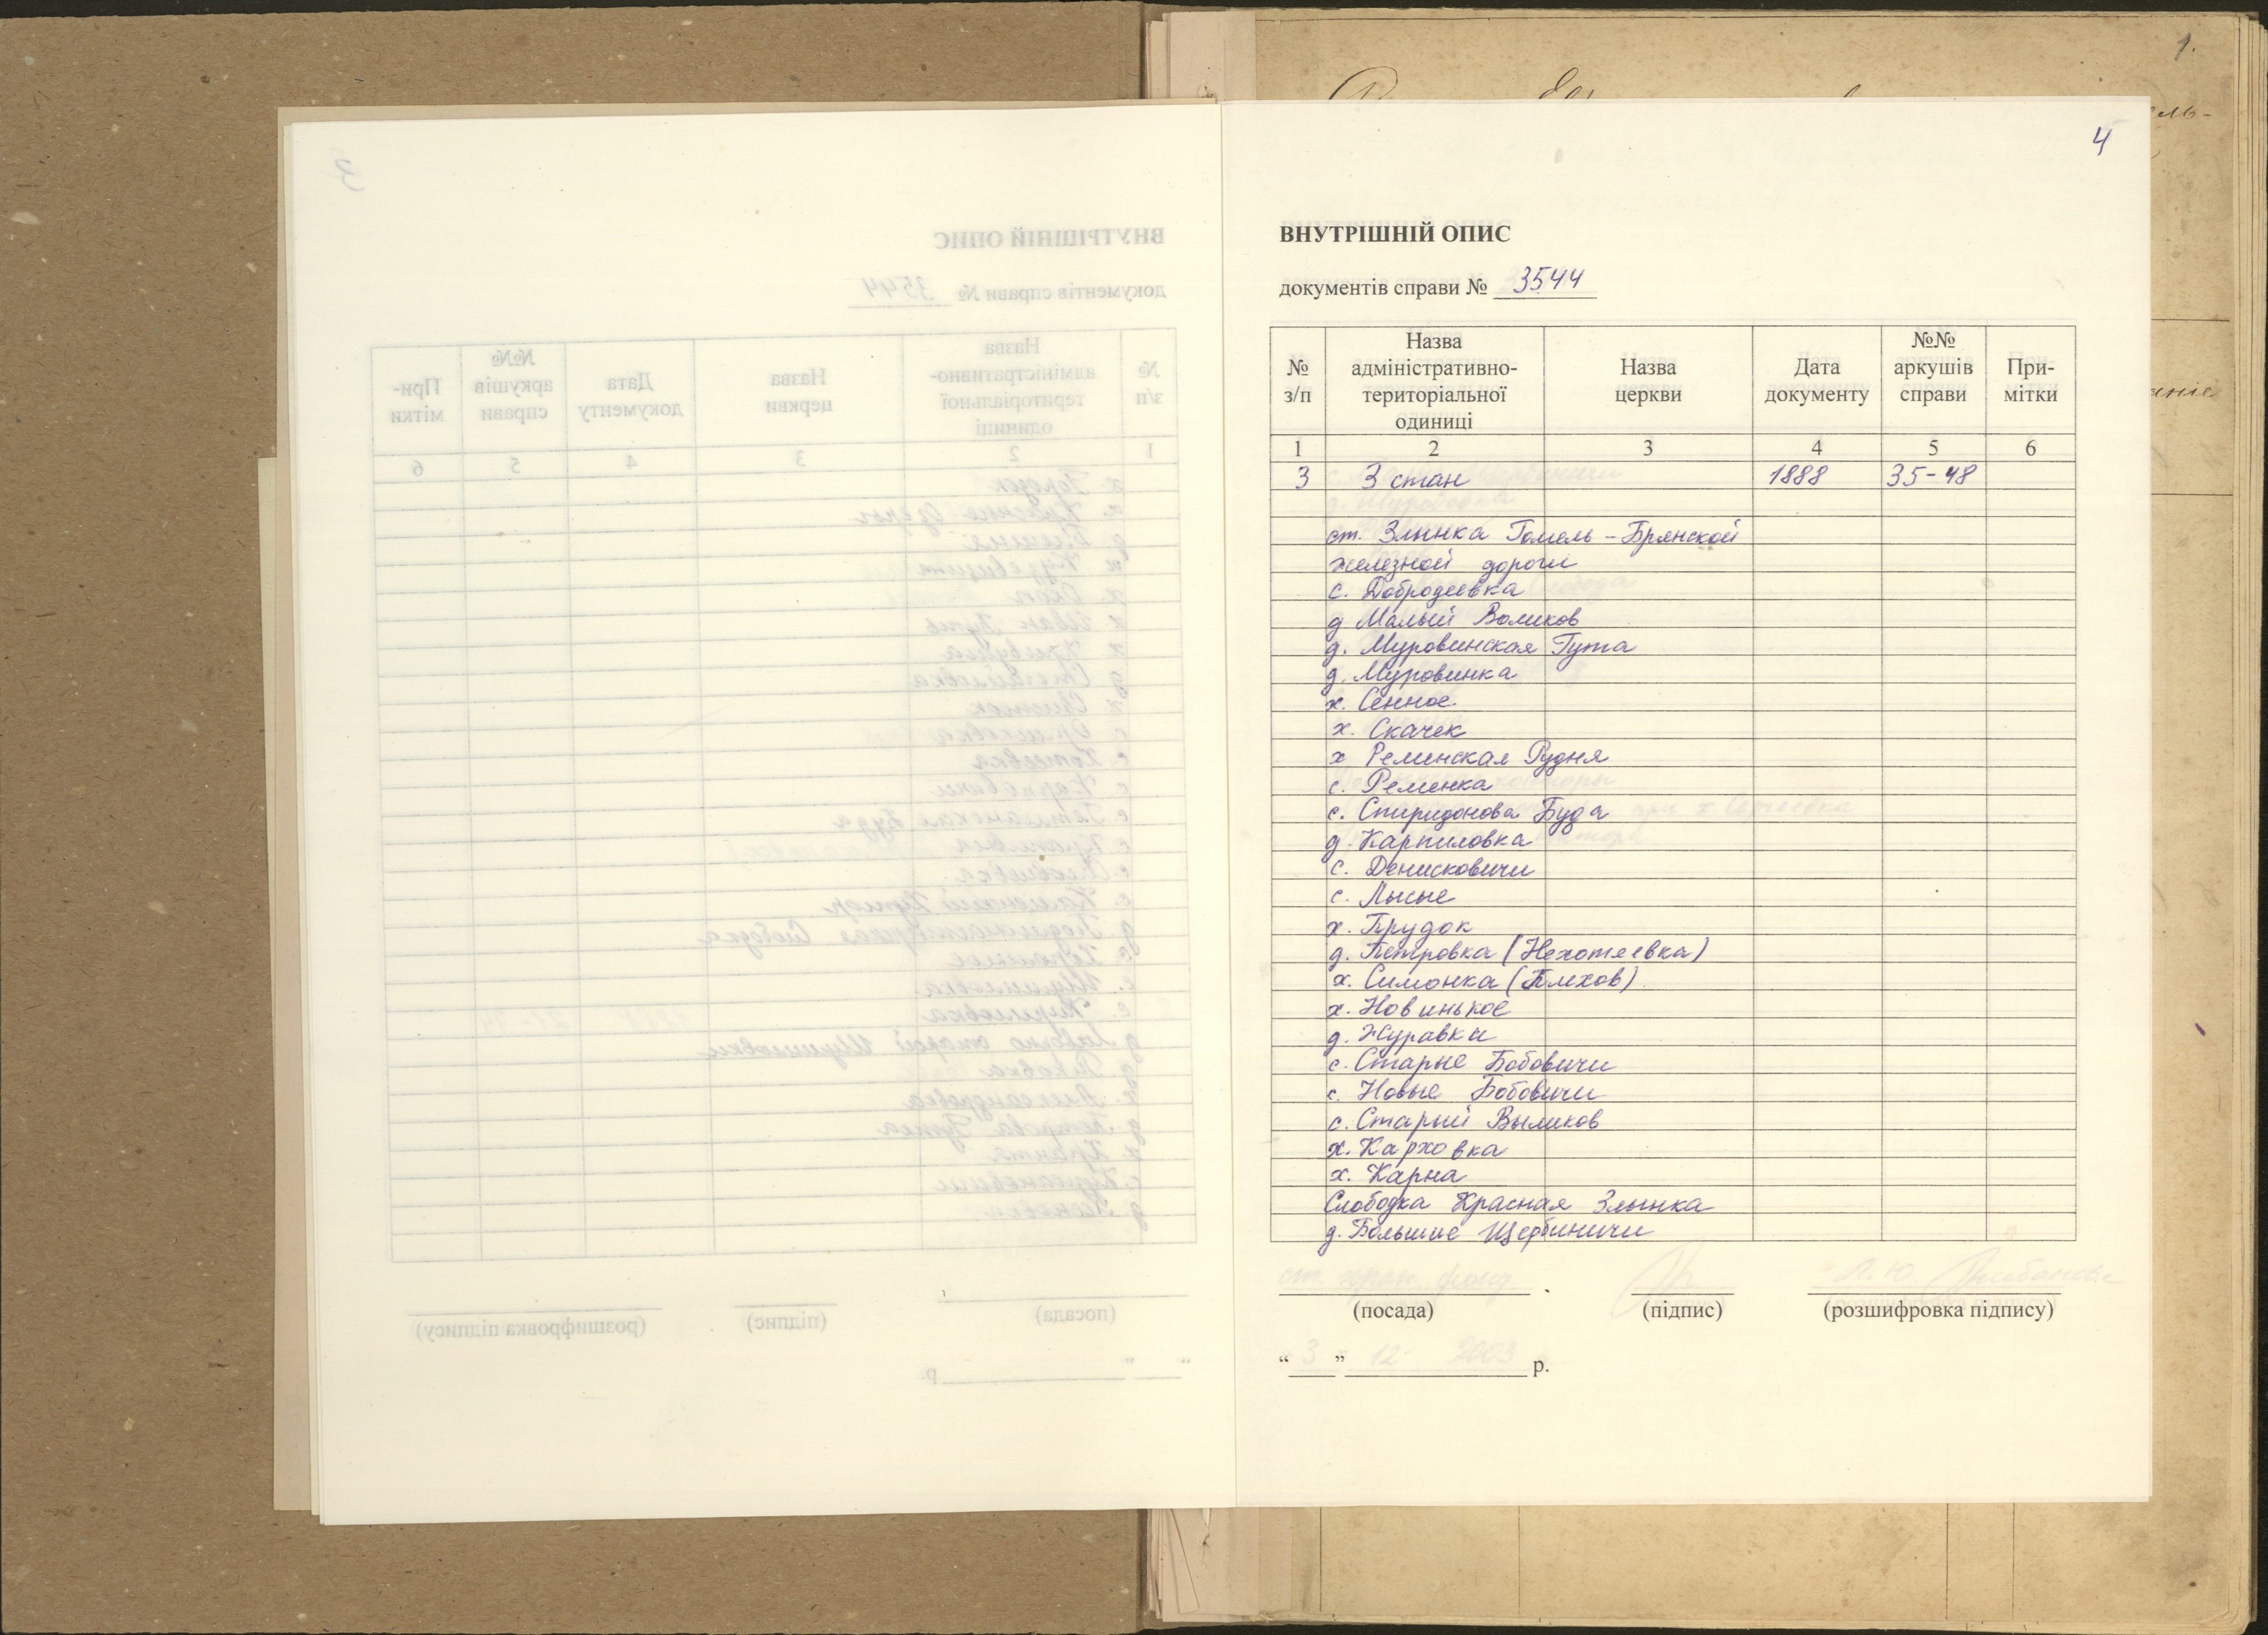 1.
4
ВНУТРІШНІЙ ОПИС
документів справи № 3544
№ з/п
Назва адміністративно-територіальної одиниці
Назва церкви
Дата документу
№№ аркушів справи
При-мітки
1 2 3 4 5 6
3 3 стан 1888 35-48
ст. Злынка Гомель-Брянской
железной дороги
с. Добродеевка
д Малый Воликов
д. Муровинская Гута
д. Муровинка
х. Сенное.
х. Скачек
х Реминская Рудня
с. Ременка
с. Спиридонова Буда
д. Карпиловка
с. Денисковичи
с. Лысые
х. Прудок
д. Петровка (Нехотеевка)
х. Симонка (Плехов)
х. Новинькое
д. Журавки
с. Старые Бобовичи
с. Новые Бобовичи
с. Старый Выликов
х. Карховка
х. Карна
Слободка Красная Злынка
д. Большие Щербиничи
(посада) (підпис) (розшифровка підпису)
“ ” р.